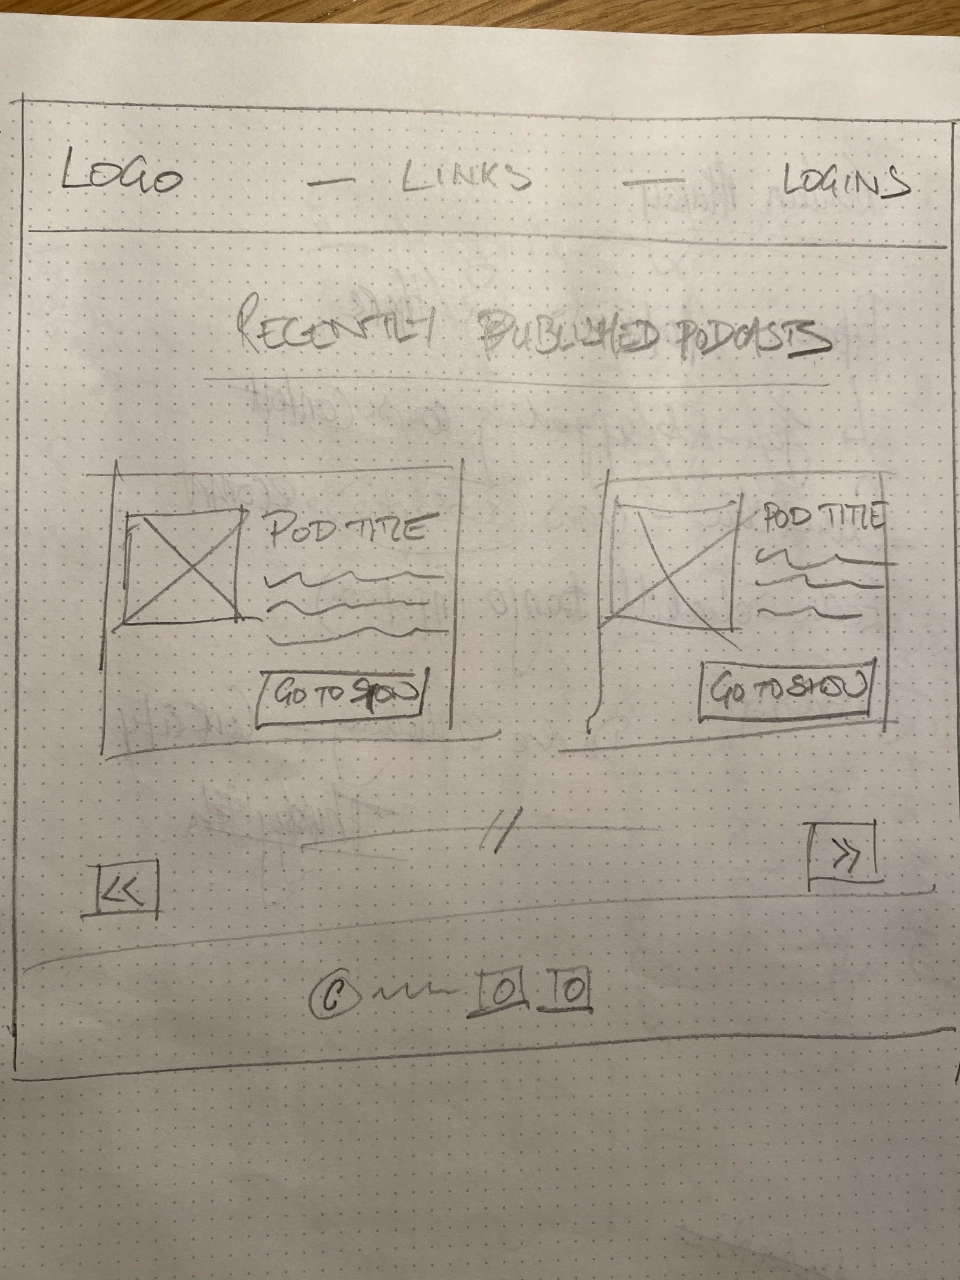 LOGO — LINKS — LOGINS
RECENTLY PUBLISHED PODCASTS
POD TITLE
GO TO SHOW
POD TITLE
GO TO SHOW
//
<<
>>
©